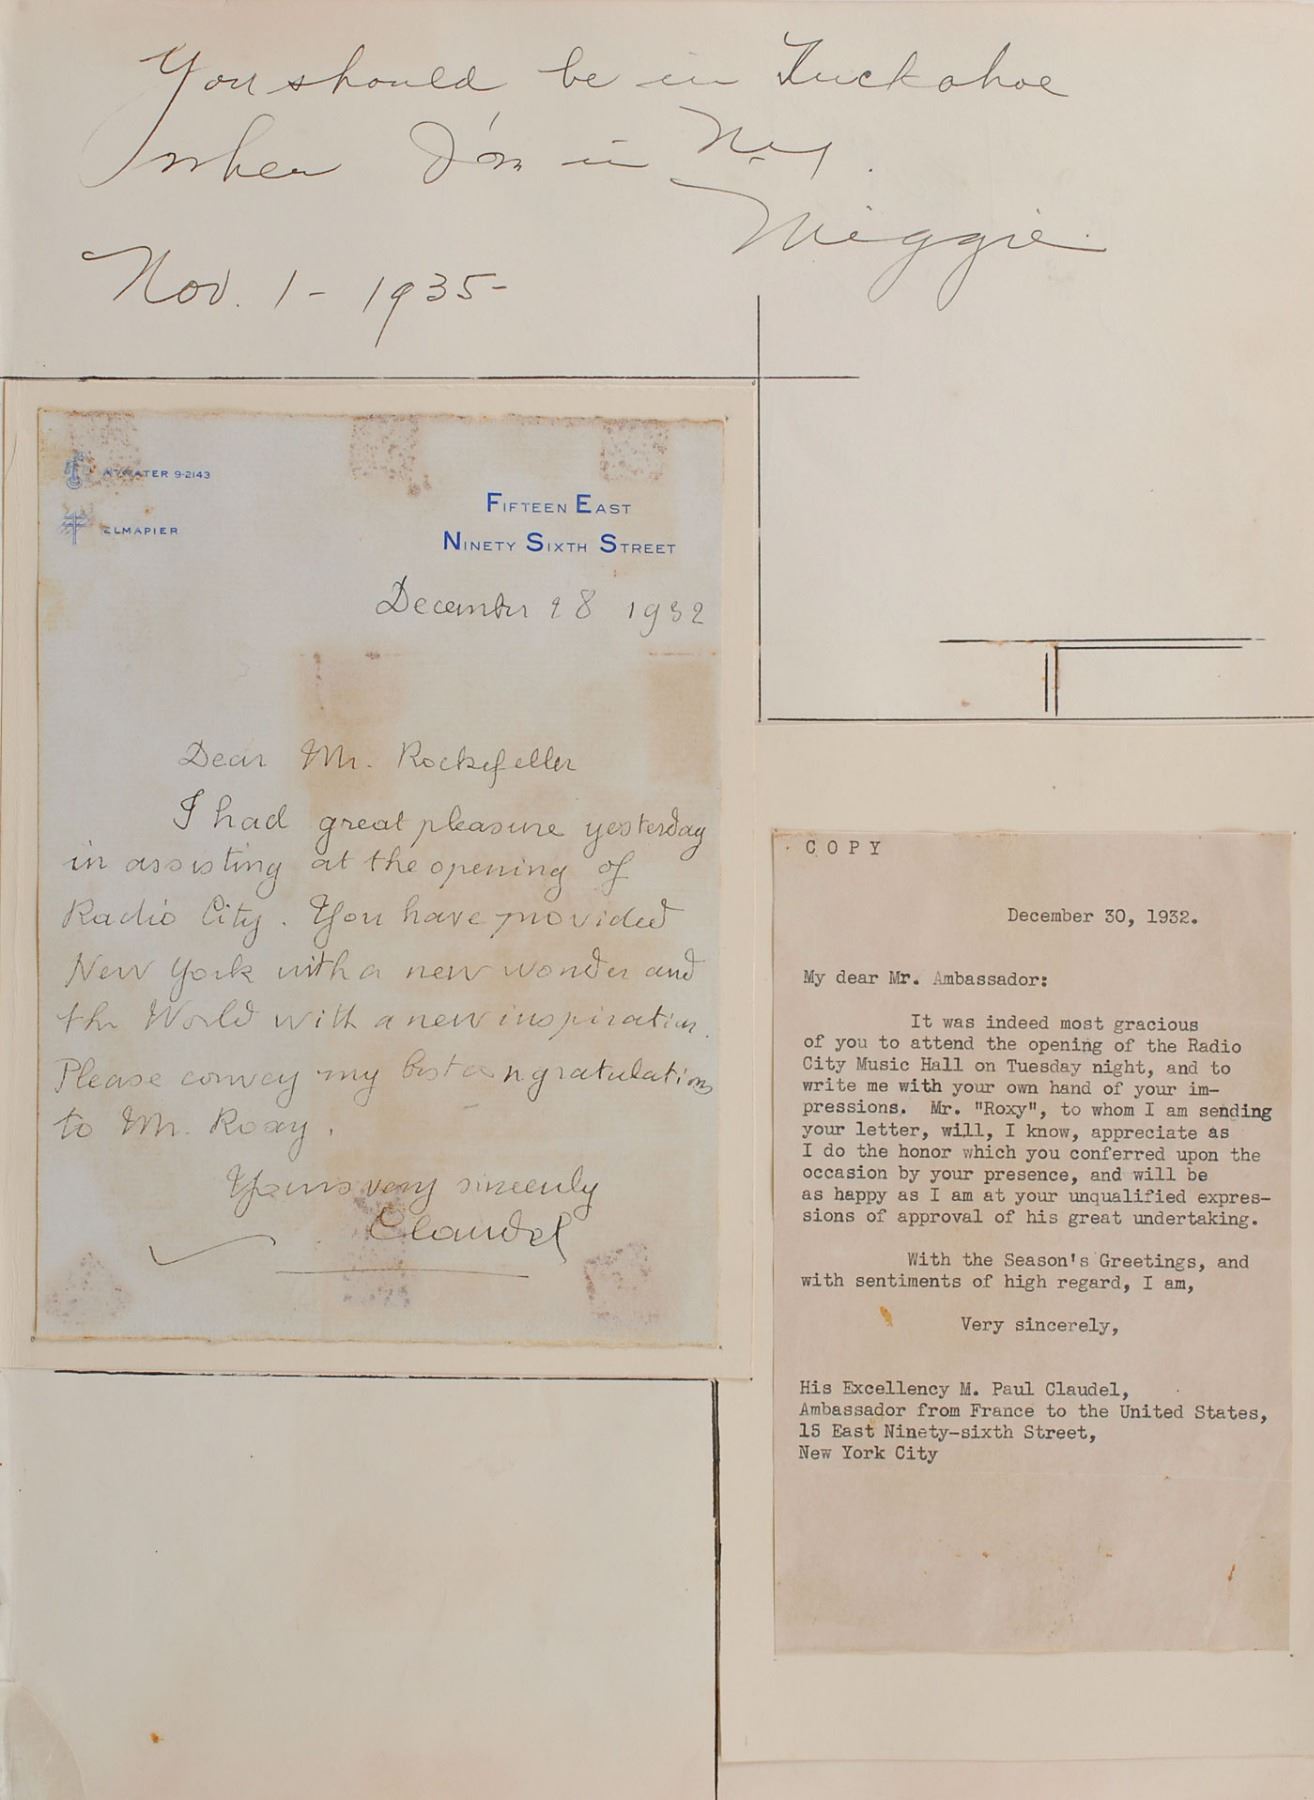 You should be in Tuckahoe
when I'm in N.Y.
Miggie
Nov. 1 - 1935 -
ATWATER 9-2143
ELMAPIER
FIFTEEN EAST
NINETY SIXTH STREET
December 28 1932
Dear Mr. Rockefeller
I had great pleasure yesterday
in assisting at the opening of
Radio City. You have provided
New York with a new wonder and
the World with a new inspiration.
Please convey my best congratulations
to Mr. Roxy.
Yours very sincerely
Claudel
COPY
December 30, 1932.
My dear Mr. Ambassador:
It was indeed most gracious
of you to attend the opening of the Radio
City Music Hall on Tuesday night, and to
write me with your own hand of your im-
pressions. Mr. "Roxy", to whom I am sending
your letter, will, I know, appreciate as
I do the honor which you conferred upon the
occasion by your presence, and will be
as happy as I am at your unqualified expres-
sions of approval of his great undertaking.
With the Season's Greetings, and
with sentiments of high regard, I am,
Very sincerely,
His Excellency M. Paul Claudel,
Ambassador from France to the United States,
15 East Ninety-sixth Street,
New York City